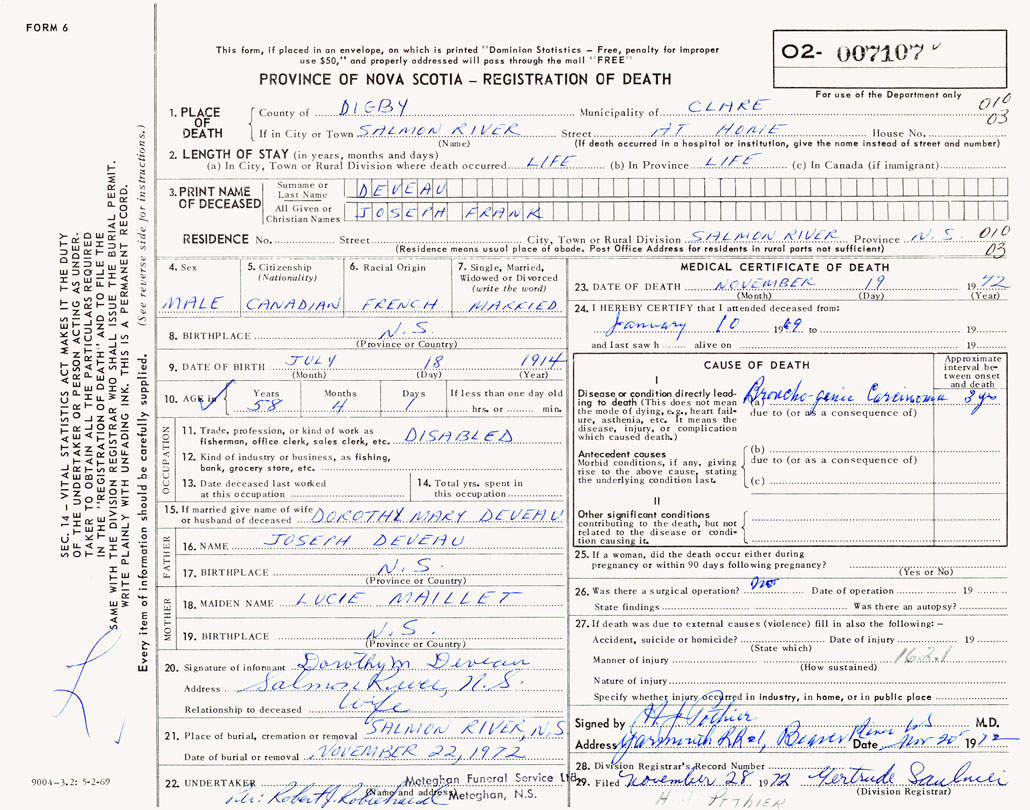 FORM 6
This form, if placed in an envelope, on which is printed "Dominion Statistics – Free, penalty for improper
use $50," and properly addressed will pass through the mail "FREE"
PROVINCE OF NOVA SCOTIA – REGISTRATION OF DEATH
02- 007107
For use of the Department only
010
03
1. PLACE OF DEATH
County of DIGBY Municipality of CLARE
If in City or Town SALMON RIVER Street AT HOME House No.
(Name) (If death occurred in a hospital or institution, give the name instead of street and number)
2. LENGTH OF STAY (in years, months and days)
(a) In City, Town or Rural Division where death occurred LIFE (b) In Province LIFE (c) In Canada (if immigrant)
3. PRINT NAME OF DECEASED
Surname or Last Name DEVEAU
All Given or Christian Names JOSEPH FRANK
RESIDENCE No. Street City, Town or Rural Division SALMON RIVER Province N.S. 010
(Residence means usual place of abode. Post Office Address for residents in rural parts not sufficient) 03
4. Sex
MALE
5. Citizenship
(Nationality)
CANADIAN
6. Racial Origin
FRENCH
7. Single, Married,
Widowed or Divorced
(write the word)
MARRIED
8. BIRTHPLACE N.S.
(Province or Country)
9. DATE OF BIRTH JULY 18 1914
(Month) (Day) (Year)
10. AGE in Years Months Days If less than one day old
58 4 1 hrs. or min.
OCCUPATION
11. Trade, profession, or kind of work as
fisherman, office clerk, sales clerk, etc. DISABLED
12. Kind of industry or business, as fishing,
bank, grocery store, etc.
13. Date deceased last worked
at this occupation
14. Total yrs. spent in
this occupation
15. If married give name of wife
or husband of deceased DOROTHY MARY DEVEAU
FATHER
16. NAME JOSEPH DEVEAU
17. BIRTHPLACE N.S.
(Province or Country)
MOTHER
18. MAIDEN NAME LUCIE MAILLET
19. BIRTHPLACE N.S.
(Province or Country)
20. Signature of informant Dorothy M. Deveau
Address Salmon River, N.S.
Relationship to deceased Wife
21. Place of burial, cremation or removal SALMON RIVER, N.S
Date of burial or removal NOVEMBER 22, 1972
22. UNDERTAKER Meteghan Funeral Service Ltd.
(Name and address) Meteghan, N.S.
Per: Robert J. Robichaud
MEDICAL CERTIFICATE OF DEATH
23. DATE OF DEATH NOVEMBER 19 1972
(Month) (Day) (Year)
24. I HEREBY CERTIFY that I attended deceased from:
January 10 1969 to 19
and last saw h alive on 19
CAUSE OF DEATH
Approximate
interval be-
tween onset
and death
I
Disease or condition directly lead-
ing to death (This does not mean
the mode of dying, e.g., heart fail-
ure, asthenia, etc. It means the
disease, injury, or complication
which caused death.)
(a) Broncho-genic Carcinoma 3 yrs
due to (or as a consequence of)
Antecedent causes
Morbid conditions, if any, giving
rise to the above cause, stating
the underlying condition last.
(b)
due to (or as a consequence of)
(c)
II
Other significant conditions
contributing to the death, but not
related to the disease or condi-
tion causing it.
25. If a woman, did the death occur either during
pregnancy or within 90 days following pregnancy?
(Yes or No)
26. Was there a surgical operation? no Date of operation 19
State findings Was there an autopsy?
27. If death was due to external causes (violence) fill in also the following: –
Accident, suicide or homicide? Date of injury 19
(State which)
Manner of injury 162.1
(How sustained)
Nature of injury
Specify whether injury occurred in industry, in home, or in public place
Signed by H J Pothier M.D.
Address Yarmouth RR#1, Beaver River NS Date Nov 20 1972
28. Division Registrar's Record Number
29. Filed November 28 1972 Gertrude Saulnier
(Division Registrar)
H. J. POTHIER
SEC. 14 – VITAL STATISTICS ACT MAKES IT THE DUTY
OF THE UNDERTAKER OR PERSON ACTING AS UNDER-
TAKER TO OBTAIN ALL THE PARTICULARS REQUIRED
IN THE "REGISTRATION OF DEATH" AND TO FILE THE
SAME WITH THE DIVISION REGISTRAR WHO SHALL ISSUE THE BURIAL PERMIT.
WRITE PLAINLY WITH UNFADING INK. THIS IS A PERMANENT RECORD.
Every item of information should be carefully supplied. (See reverse side for instructions.)
9004-3.2: 5-2-69